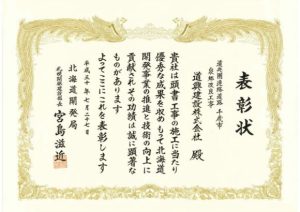 表彰状
道央圏連絡道路 千歳市
泉郷改良工事
道興建設株式会社 殿
貴社は頭書工事の施工に当たり
優秀な成果を収め もって北海道
開発事業の推進と技術の向上に
貢献され その功績は誠に顕著な
ものがあります
よってここにこれを表彰します
平成二十年七月二十七日
北海道開発局
札幌開発建設部長 宮島滋近